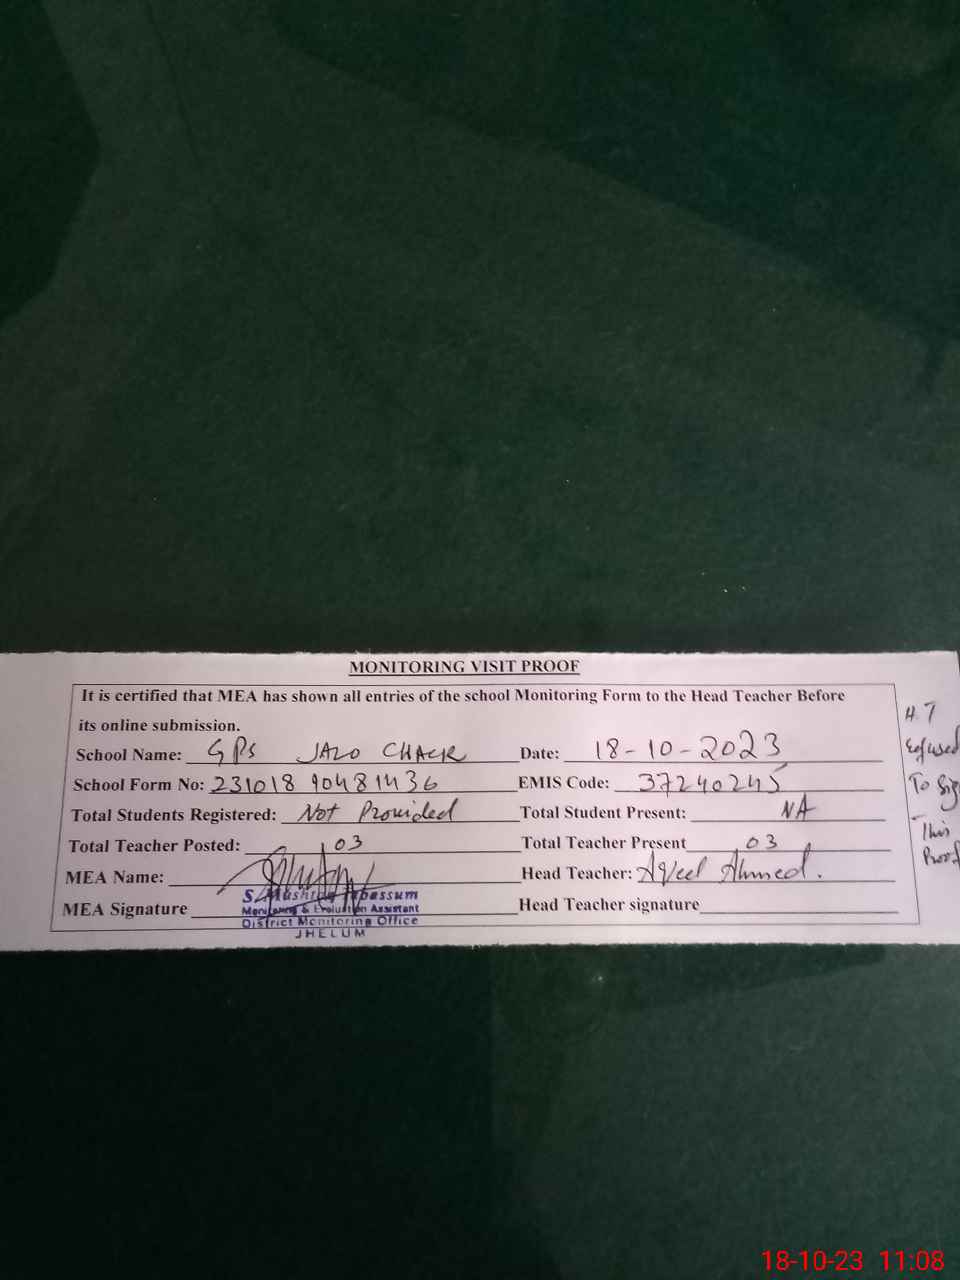 MONITORING VISIT PROOF
It is certified that MEA has shown all entries of the school Monitoring Form to the Head Teacher Before
its online submission.
School Name: GPS JALO CHACK Date: 18-10-2023
School Form No: 231018 90481436 EMIS Code: 37240245
Total Students Registered: Not Provided Total Student Present: NA
Total Teacher Posted: 03 Total Teacher Present 03
MEA Name: Head Teacher: Aqeel Ahmed.
MEA Signature Head Teacher signature
S. Mushtaq Tabassum
Monitoring & Evaluation Assistant
District Monitoring Office
JHELUM
H.T
Refused
To Sig
This
Proof
18-10-23 11:08